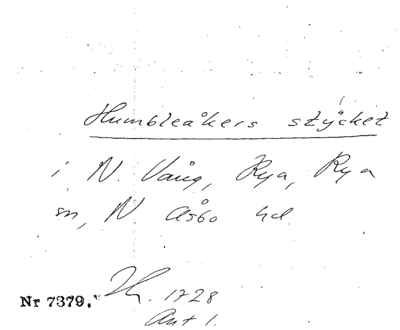 Humbleåkers stycket
i N. Vång, Rya, Rya
sn, N. Åsbo hd
Nr 7379. Th. 1728
Akt 1.